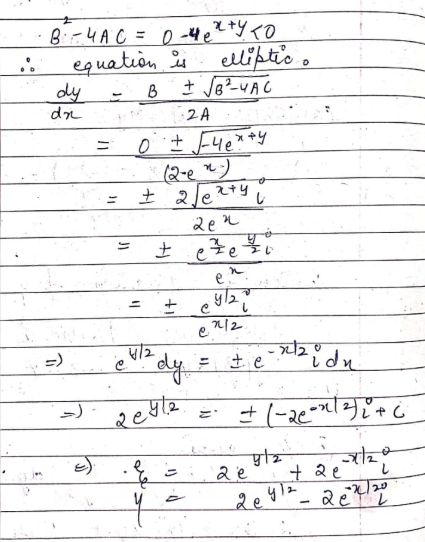 B² - 4AC = 0 - 4e^{x+y} < 0
∴ equation is elliptic.
dy/dx = (B ± √(B² - 4AC))/2A
= (0 ± √(-4e^{x+y}))/(2·e^x)
= ± (2√(e^{x+y}) i)/(2e^x)
= ± (e^{x/2} e^{y/2} i)/e^x
= ± (e^{y/2} i)/e^{x/2}
⇒) e^{y/2} dy = ± e^{-x/2} i dx
⇒) 2e^{y/2} = ± (-2e^{-x/2}) i + c
⇒) ξ = 2e^{y/2} + 2e^{-x/2} i
η = 2e^{y/2} - 2e^{-x/2} i